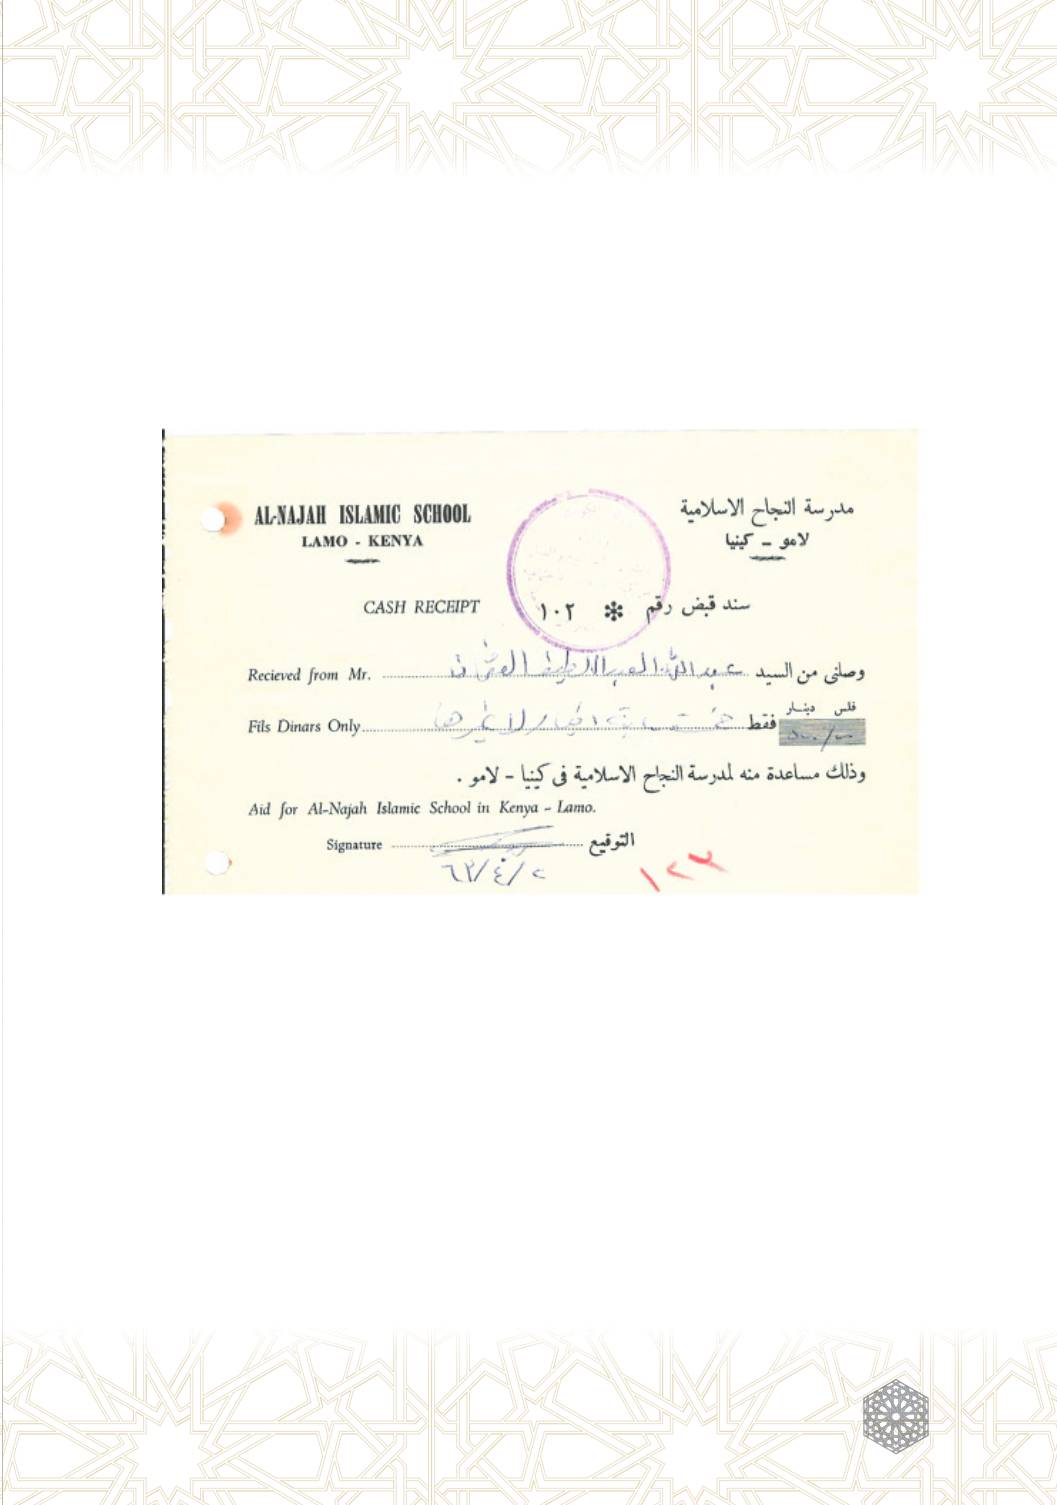 AL-NAJAH ISLAMIC SCHOOL
LAMO - KENYA
مدرسة النجاح الاسلامية
لامو - كينيا
CASH RECEIPT
سند قبض رقم * ١٠٢
Recieved from Mr.
وصلني من السيد عبد الله العبد اللطيف العثمان
فلس دينار
Fils Dinars Only
فقط خمسماية دينار لا غيرها
٥٠٠/-
وذلك مساعدة منه لمدرسة النجاح الاسلامية في كينيا - لامو .
Aid for Al-Najah Islamic School in Kenya - Lamo.
Signature التوقيع
٦٢/٤/٢